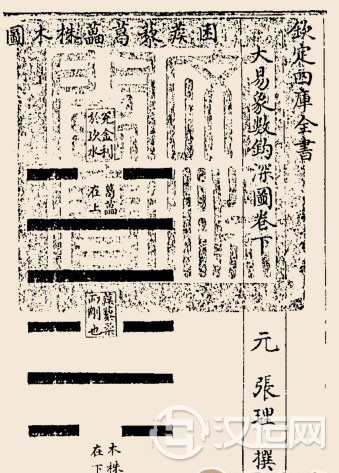 欽定四庫全書
大易象數鈎深圖卷下
元 張理 撰
困蒺藜葛藟株木圖
葛藟
在上
蒺藜柔
而剛也
木株
在下
汉运网